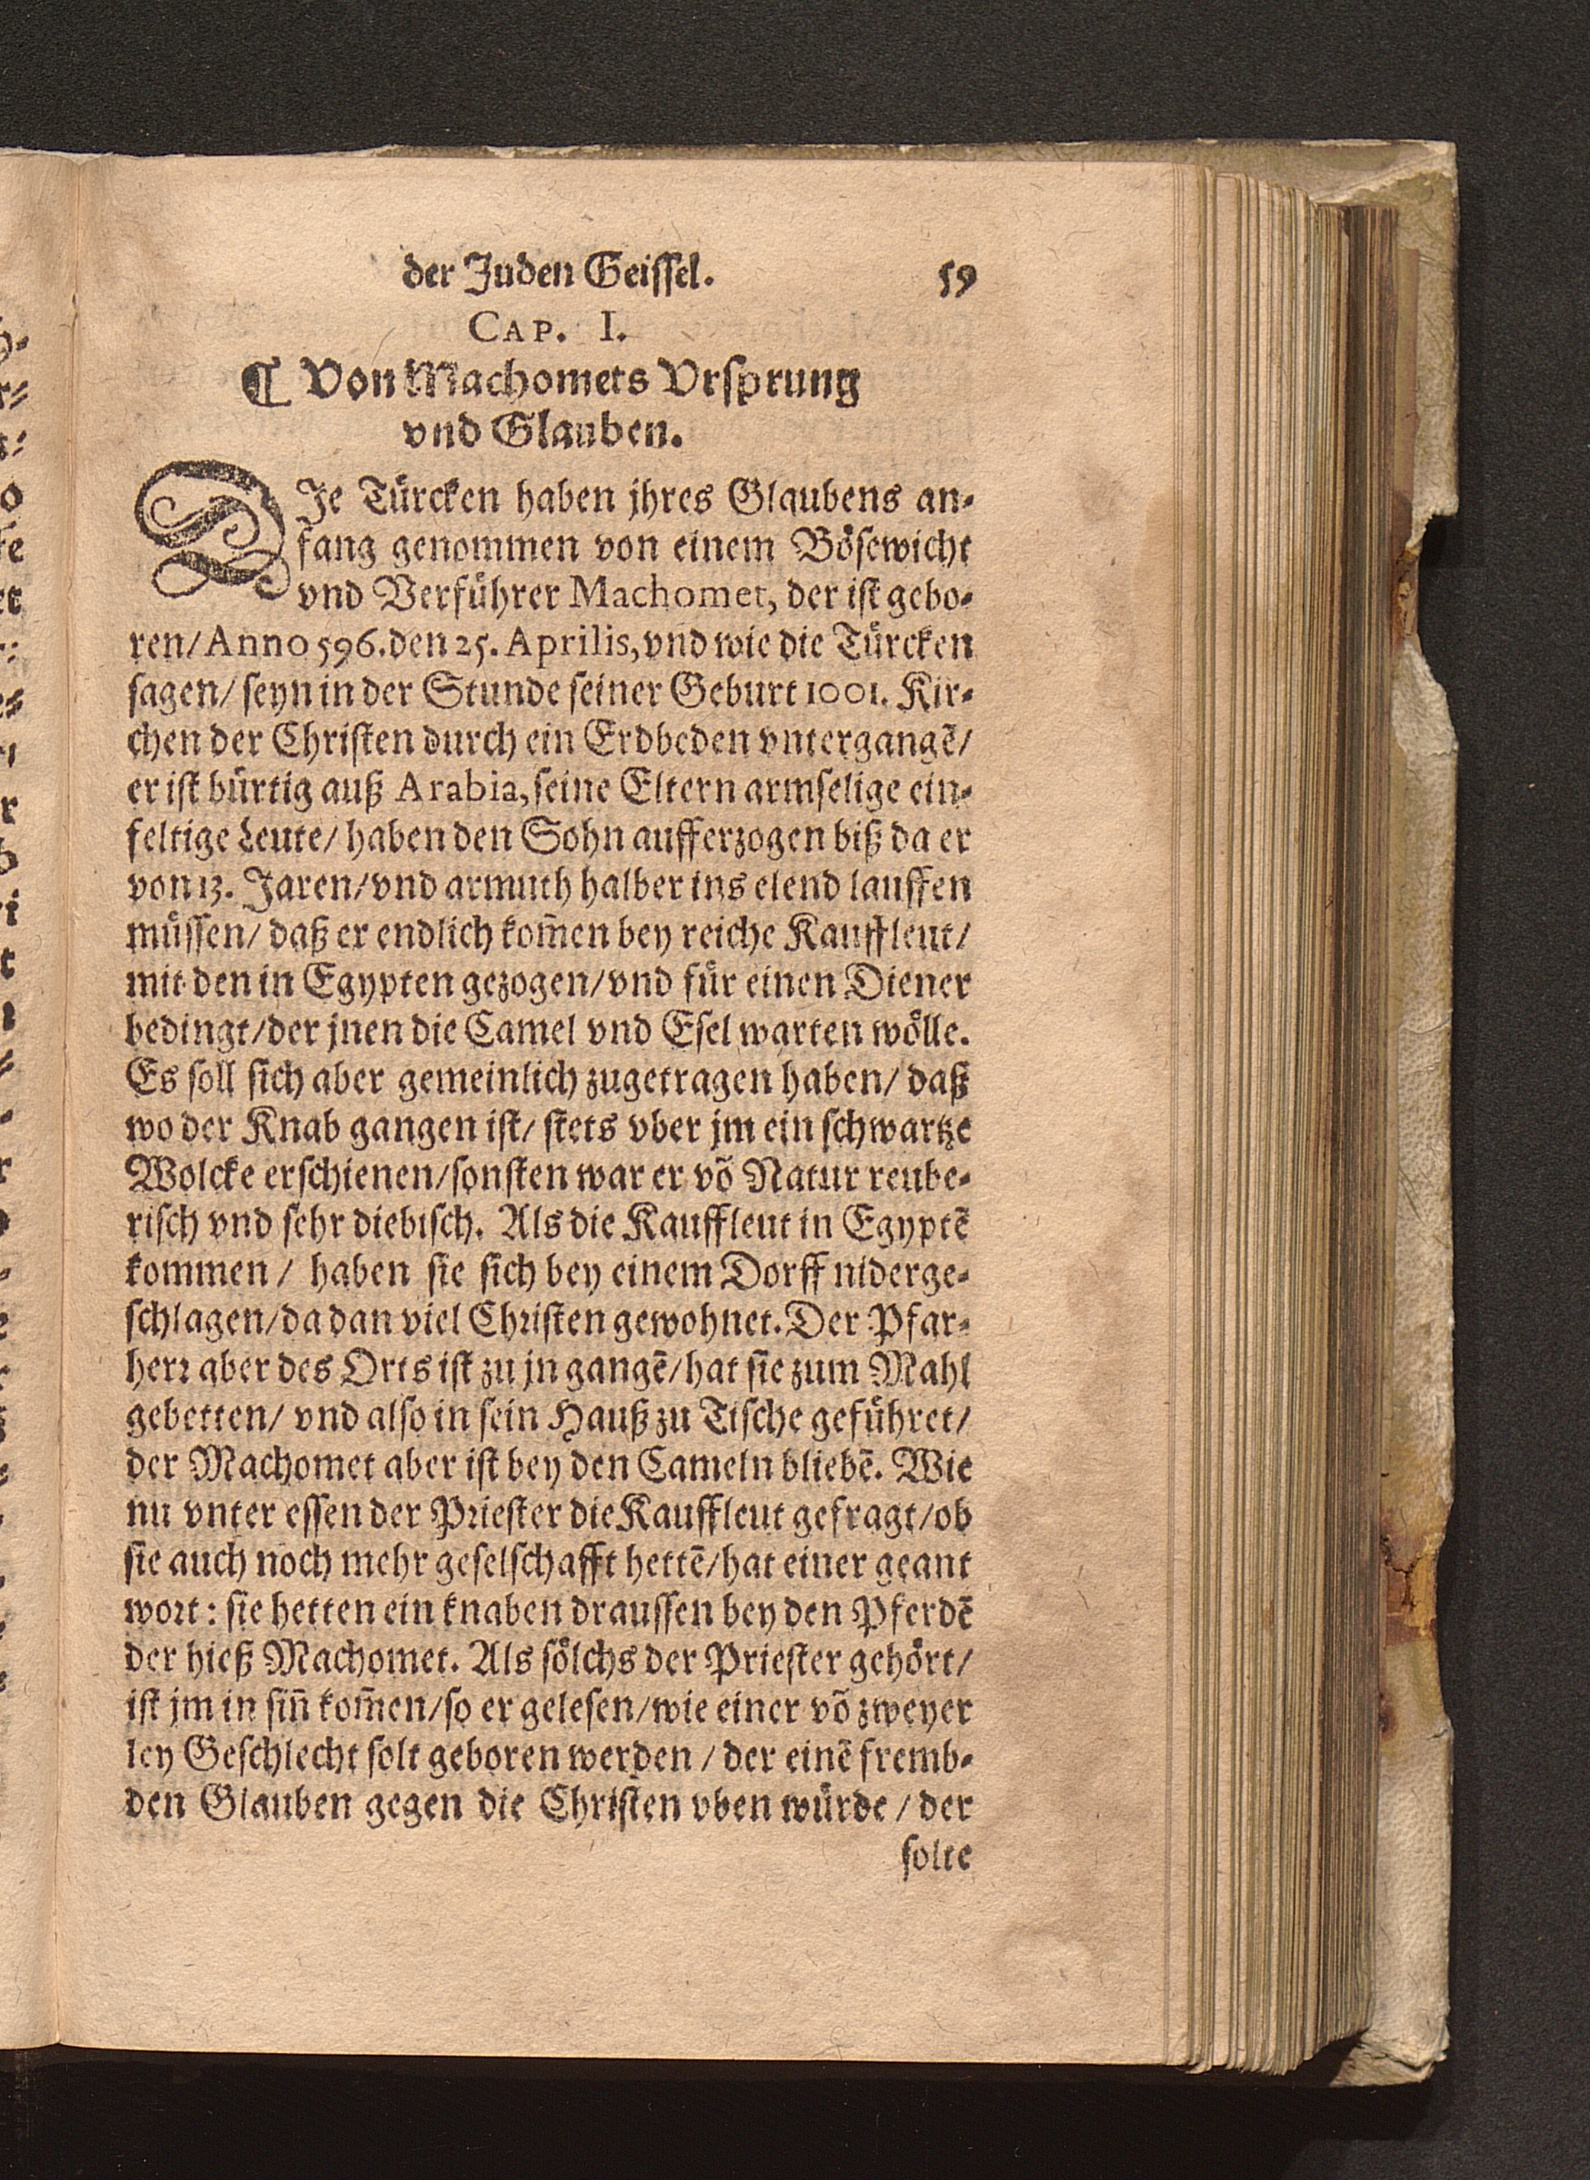 der Juden Geissel. 59
CAP. I.
¶ Von Machomets Vrsprung
vnd Glauben.
DIe Türcken haben jhres Glaubens an-
fang genommen von einem Bösewicht
vnd Verführer Machomet, der ist gebo-
ren/ Anno 596. den 25. Aprilis, vnd wie die Türcken
sagen/ seyn in der Stunde seiner Geburt 1001. Kir-
chen der Christen durch ein Erdbeden vntergangẽ/
er ist bürtig auß Arabia, seine Eltern armselige ein-
feltige Leute/ haben den Sohn aufferzogen biß da er
von 13. Jaren/ vnd armuth halber ins elend lauffen
müssen/ daß er endlich kom̃en bey reiche Kauffleut/
mit den in Egypten gezogen/ vnd für einen Diener
bedingt/ der jnen die Camel vnd Esel warten wölle.
Es soll sich aber gemeinlich zugetragen haben/ daß
wo der Knab gangen ist/ stets vber jm ein schwartze
Wolcke erschienen/ sonsten war er võ Natur reube-
risch vnd sehr diebisch. Als die Kauffleut in Egyptẽ
kommen / haben sie sich bey einem Dorff niderge-
schlagen/ da dan viel Christen gewohnet. Der Pfar-
herr aber des Orts ist zu jn gangẽ/ hat sie zum Mahl
gebetten/ vnd also in sein Hauß zu Tische geführet/
der Machomet aber ist bey den Cameln bliebẽ. Wie
nu vnter essen der Priester die Kauffleut gefragt/ ob
sie auch noch mehr geselschafft hettẽ/ hat einer geant
wort: sie hetten ein knaben draussen bey den Pferdẽ
der hieß Machomet. Als sölchs der Priester gehört/
ist jm in sin̄ kom̃en/ so er gelesen/ wie einer võ zweyer
ley Geschlecht solt geboren werden / der einẽ fremb-
den Glauben gegen die Christen vben würde / der
solte